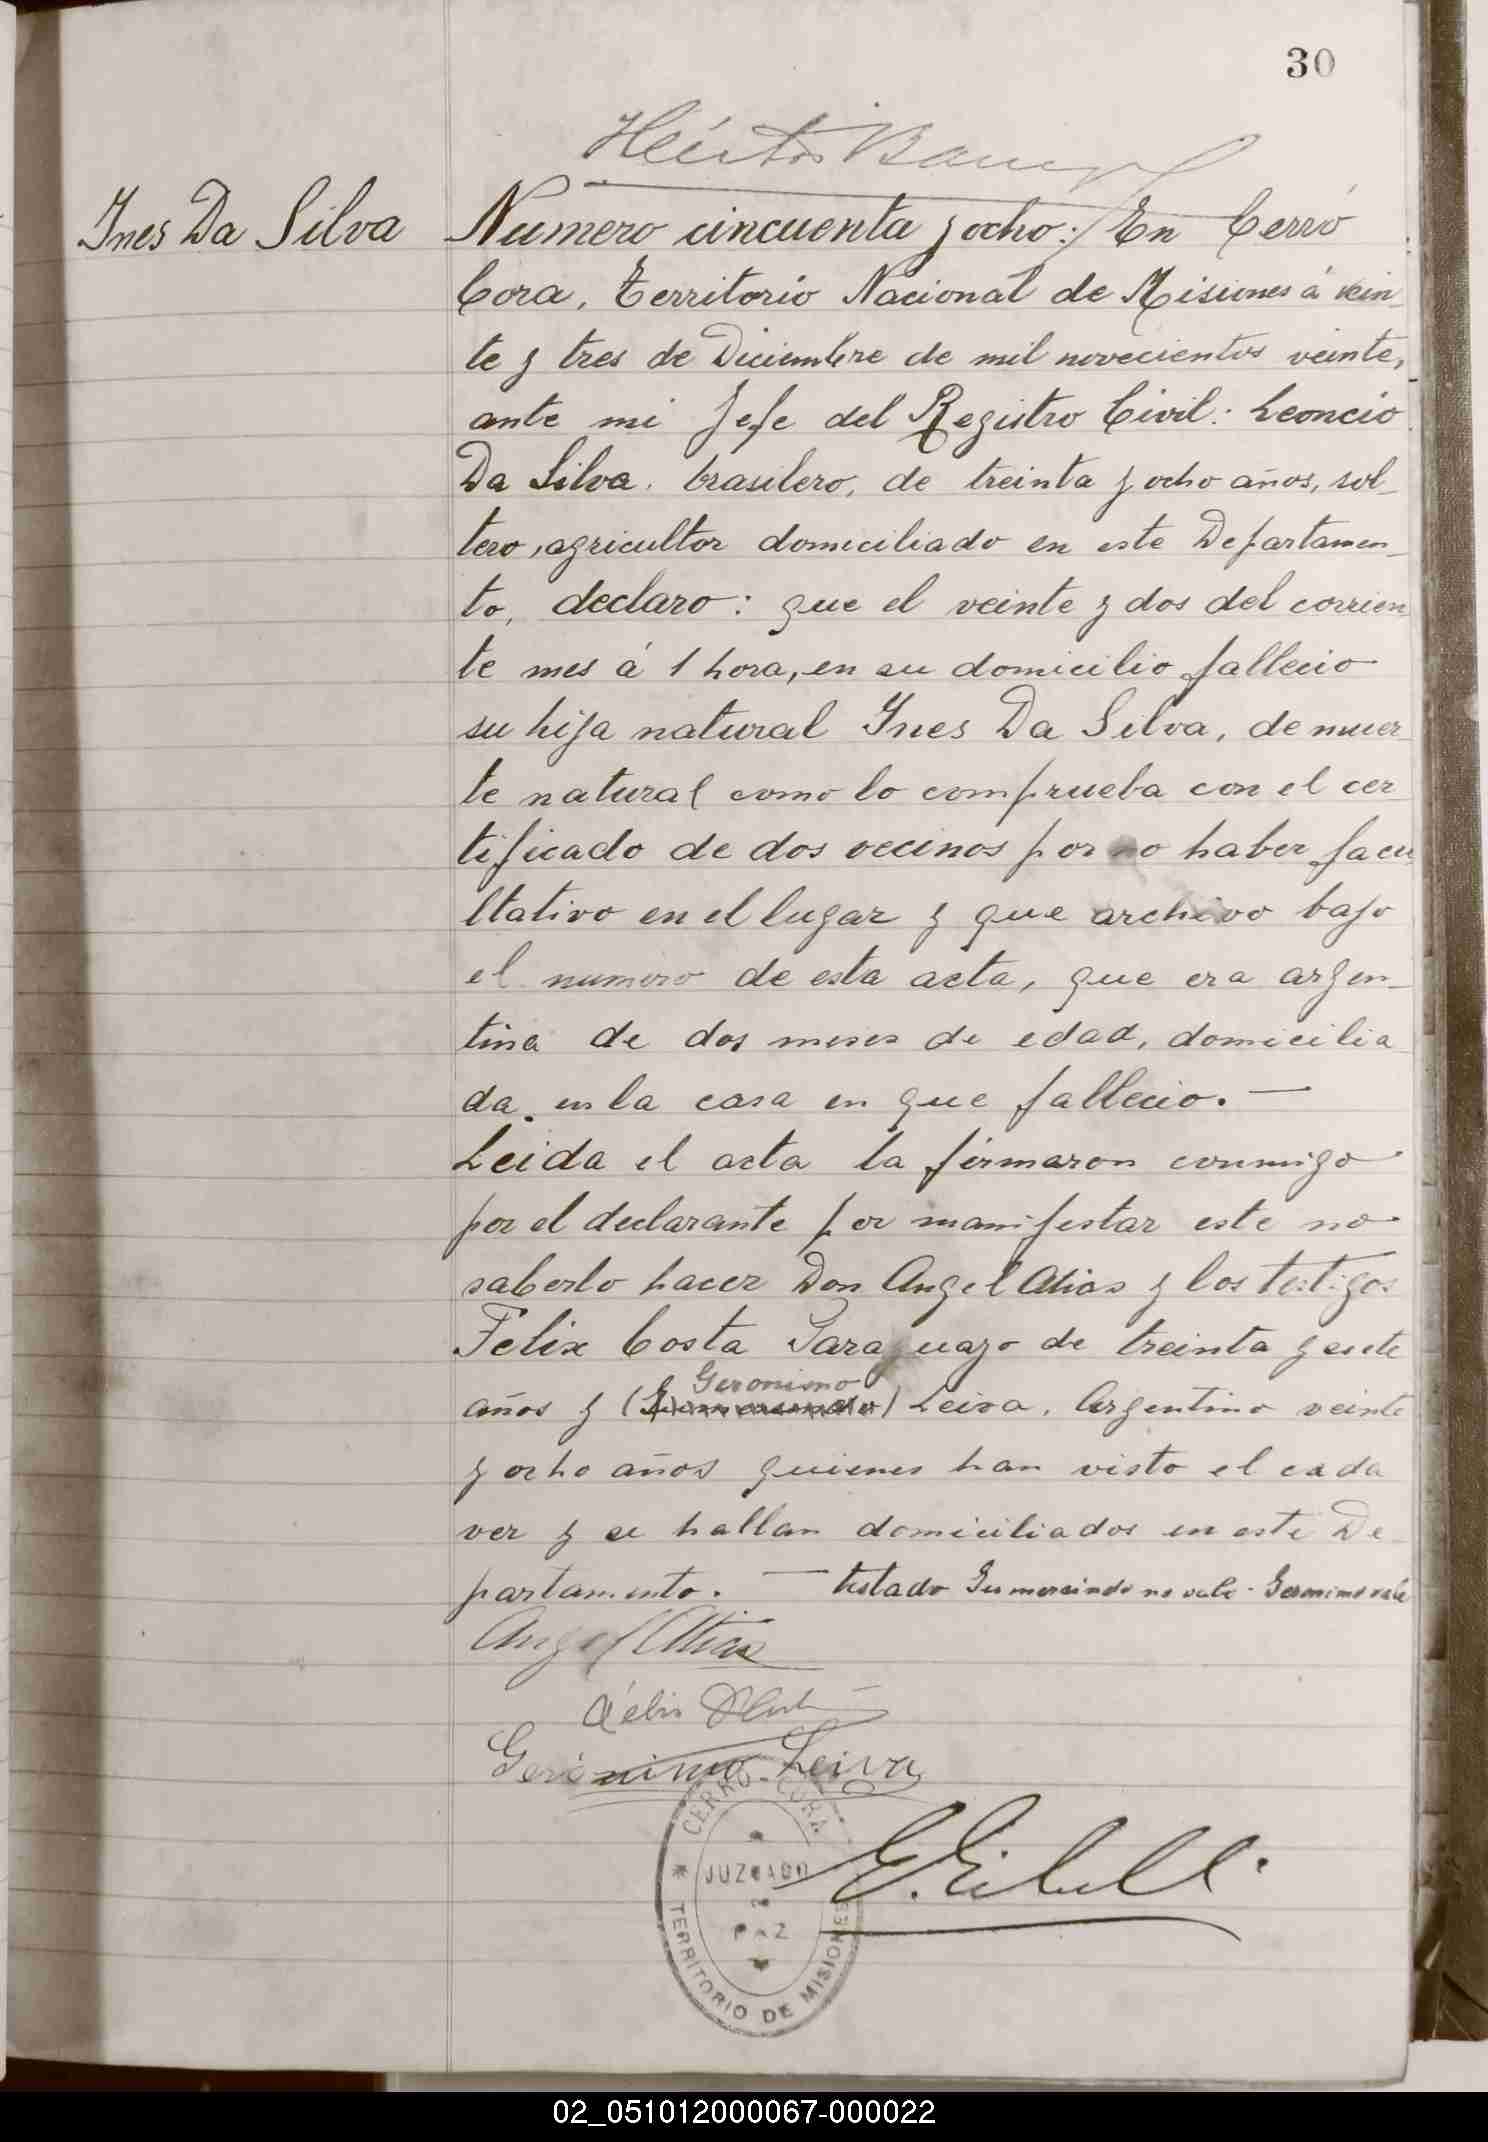 30
Héctor
Ines Da Silva
Numero cincuenta y ocho: En Cerró
Cora, Territorio Nacional de Misiones á vein
te y tres de Diciembre de mil novecientos veinte,
ante mi Jefe del Registro Civil: Leoncio
Da Silva, brasilero, de treinta y ocho años, sol
tero, agricultor domiciliado en este Departamen
to, declaro: que el veinte y dos del corrien
te mes á 1 hora, en su domicilio fallecio
su hija natural Ines Da Silva, de muer
te natural como lo comprueba con el cer
tificado de dos vecinos por no haber facu
ltativo en el lugar y que archivo bajo
el numero de esta acta, que era argen
tina de dos meses de edad, domicilia
da en la casa en que fallecio. —
Leida el acta la firmaron conmigo
por el declarante por manifestar este no
saberlo hacer Don Angel Atias y los testigos
Felix Costa Paraguayo de treinta y siete
Geronimo
años y (Gumersindo) Leiva, Argentino veinte
y ocho años quienes han visto el cada
ver y se hallan domiciliados en este De
partamento. — testado Gumersindo no vale - Geronimo vale
Angel Atias
Gerónimo Leiva
CERRO-CORA
JUZGADO
DE
PAZ
TERRITORIO DE MISIONES
02_051012000067-000022